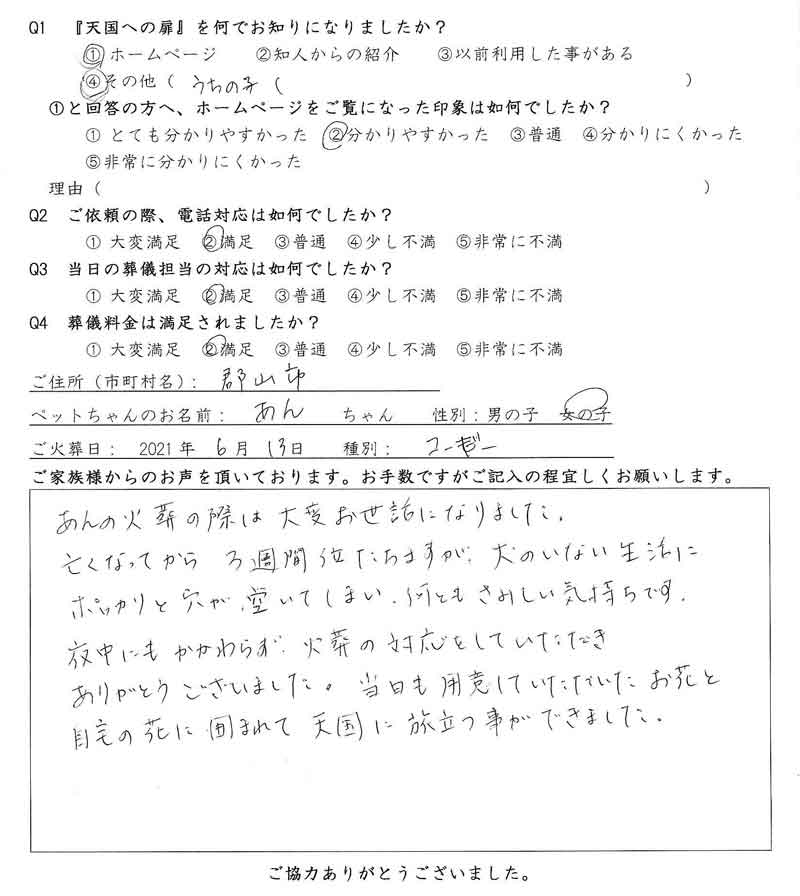 Q1 『天国への扉』を何でお知りになりましたか？
① ホームページ ②知人からの紹介 ③以前利用した事がある
④その他（ うちの子 ( ）
①と回答の方へ、ホームページをご覧になった印象は如何でしたか？
① とても分かりやすかった ②分かりやすかった ③普通 ④分かりにくかった
⑤非常に分かりにくかった
理由（ ）
Q2 ご依頼の際、電話対応は如何でしたか？
① 大変満足 ②満足 ③普通 ④少し不満 ⑤非常に不満
Q3 当日の葬儀担当の対応は如何でしたか？
① 大変満足 ②満足 ③普通 ④少し不満 ⑤非常に不満
Q4 葬儀料金は満足されましたか？
① 大変満足 ②満足 ③普通 ④少し不満 ⑤非常に不満
ご住所（市町村名）： 郡山市
ペットちゃんのお名前： あん ちゃん 性別：男の子 女の子
ご火葬日： 2021年 6月 13日 種別： コーギー
ご家族様からのお声を頂いております。お手数ですがご記入の程宜しくお願いします。
あんの火葬の際は大変お世話になりました。
亡くなってから 3週間位たちますが、犬のいない生活に
ポッカリと穴が空いてしまい、何ともさみしい気持ちです。
夜中にもかかわらず、火葬の対応をしていただき
ありがとうございました。当日も用意していただいたお花と
自宅の花に囲まれて天国に旅立つ事ができました。
ご協力ありがとうございました。